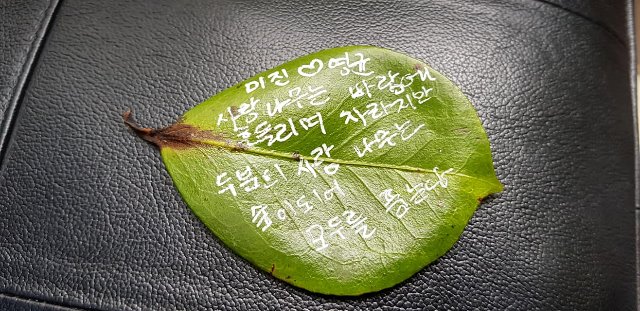 미진♡영균
사랑나무는 바람에
흔들리며 자라지만
두분의 사랑 나무는
숲이되어
모두를 품는당